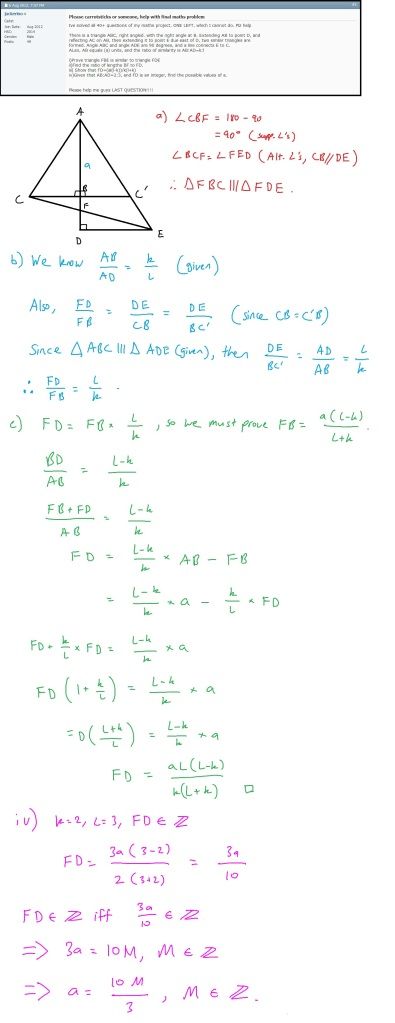 6 Aug 2012, 7:37 PM
Please carrotsticks or someone, help with final maths problem
Cadet
Join Date: Aug 2012
HSC: 2014
Gender: Male
Posts:
Ive solved all 40+ questions of my maths project. ONE LEFT, which I cannot do. PD help
There is a triangle ABC, right angled, with the right angle at B. Extending AB to point D, and
reflecting AC on AB, then extending it to point E due east of D, two similar triangles are
formed. Angle ABC and angle ADE are 90 degrees, and a line connects E to C.
ALso, AB equals (a) units, and the ratio of similarity is AB:AD=k:l
i)Prove triangle FBE is similar to triangle FDE
ii)Find the ratio of lengths BF to FD.
iii) Show that FD=
iv)Given that AB:AD=2:3, and FD is an integer, find the possible values of a.
Please help me guys LAST QUESTION!!!
A
a
C B C'
F
D E
a) ∠CBF = 180 - 90
= 90° (supp. ∠'s)
∠BCF = ∠FED (Alt. ∠'s, CB//DE)
∴ △FBC ||| △FDE.
b) We know AB/AD = k/L (given)
Also, FD/FB = DE/CB = DE/BC' (since CB = C'B)
Since △ABC ||| △ADE (given), then DE/BC' = AD/AB = L/k
∴ FD/FB = L/k.
c) FD = FB × L/k, so we must prove FB = a(L-k)/L+k.
BD/AB = L-k/k
FB+FD/AB = L-k/k
FD = L-k/k × AB - FB
= L-k/k × a - k/L × FD
FD + k/L × FD = L-k/k × a
FD(1 + k/L) = L-k/k × a
=D(L+k/L) = L-k/k × a
FD = aL(L-k)/k(L+k) □
iv) k=2, L=3, FD ∈ ℤ
FD = 3a(3-2)/2(3+2) = 3a/10
FD ∈ ℤ iff 3a/10 ∈ ℤ
=> 3a = 10M, M ∈ ℤ
=> a = 10M/3, M ∈ ℤ.